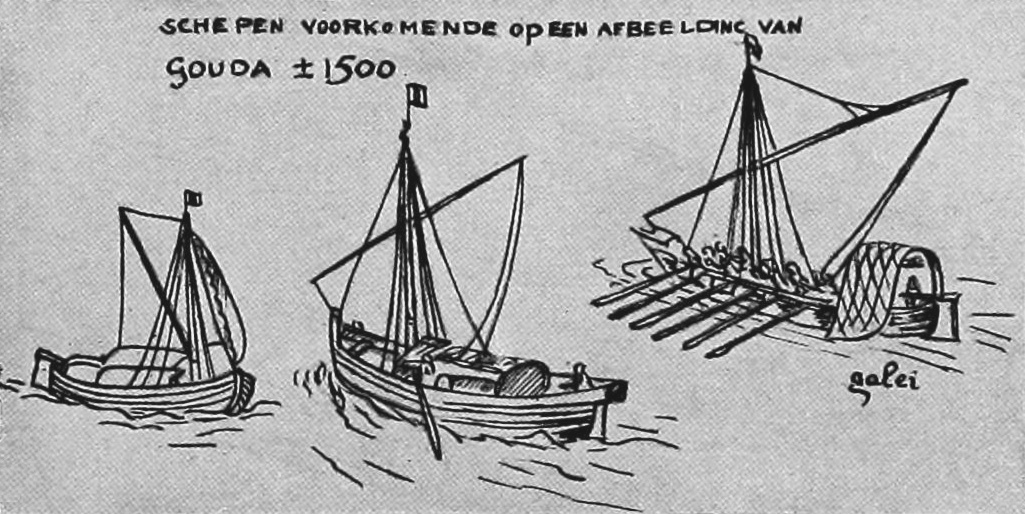 SCHEPEN VOORKOMENDE OP EEN AFBEELDING VAN
GOUDA ± 1500
galei